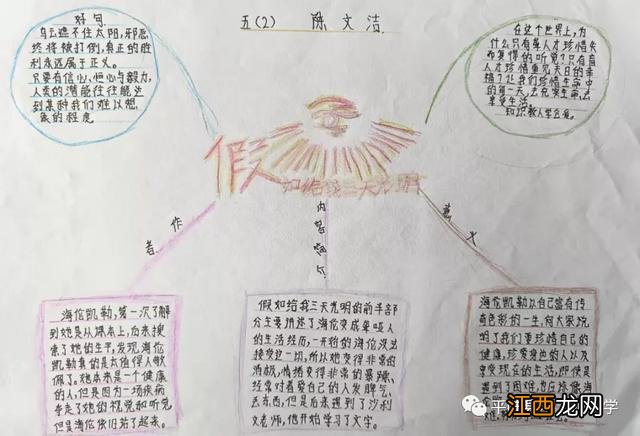 五(2) 陈文洁
好句
乌云遮不住太阳,邪恶
终将被打倒,真正的胜
利永远属于正义。
只要有信心,恒心与毅力,
人类的潜能往往能达
到某种我们难以想
象的程度
在这个世界上,为
什么只有聋人才珍惜失
而复得的听觉?只有盲
人才珍惜重见天日的幸
福?让我们珍惜生命中
的每一天,去充实生命,去
享受生活。
假
如给我三天光明
作者
内容简介
意义
海伦凯勒,第一次了解
到她是从课本上,后来搜
索了她的生平,发现海伦
凯勒真的是太值得人敬
佩了。她本来是一个健康
的人,但是因为一场疾病
夺走了她的视觉和听觉
但是海伦依旧站了起来。
假如给我三天光明的前半部
分主要讲述了海伦变成盲哑人
的生活经历,一开始的海伦没法
接受这一切,所以她变得非常的
消极,情绪变得非常的暴躁,
经常对着爱自己的人发脾气,
丢东西,但是后来遇到了沙利
文老师,他开始学习了文字。
海伦凯勒以自己富有传
奇色彩的一生,向大家说
明了我们要珍惜自己的
健康,珍爱身边的人以及
享受现在的生活,即使是
遇到了困难,也应该像海
江西龙网